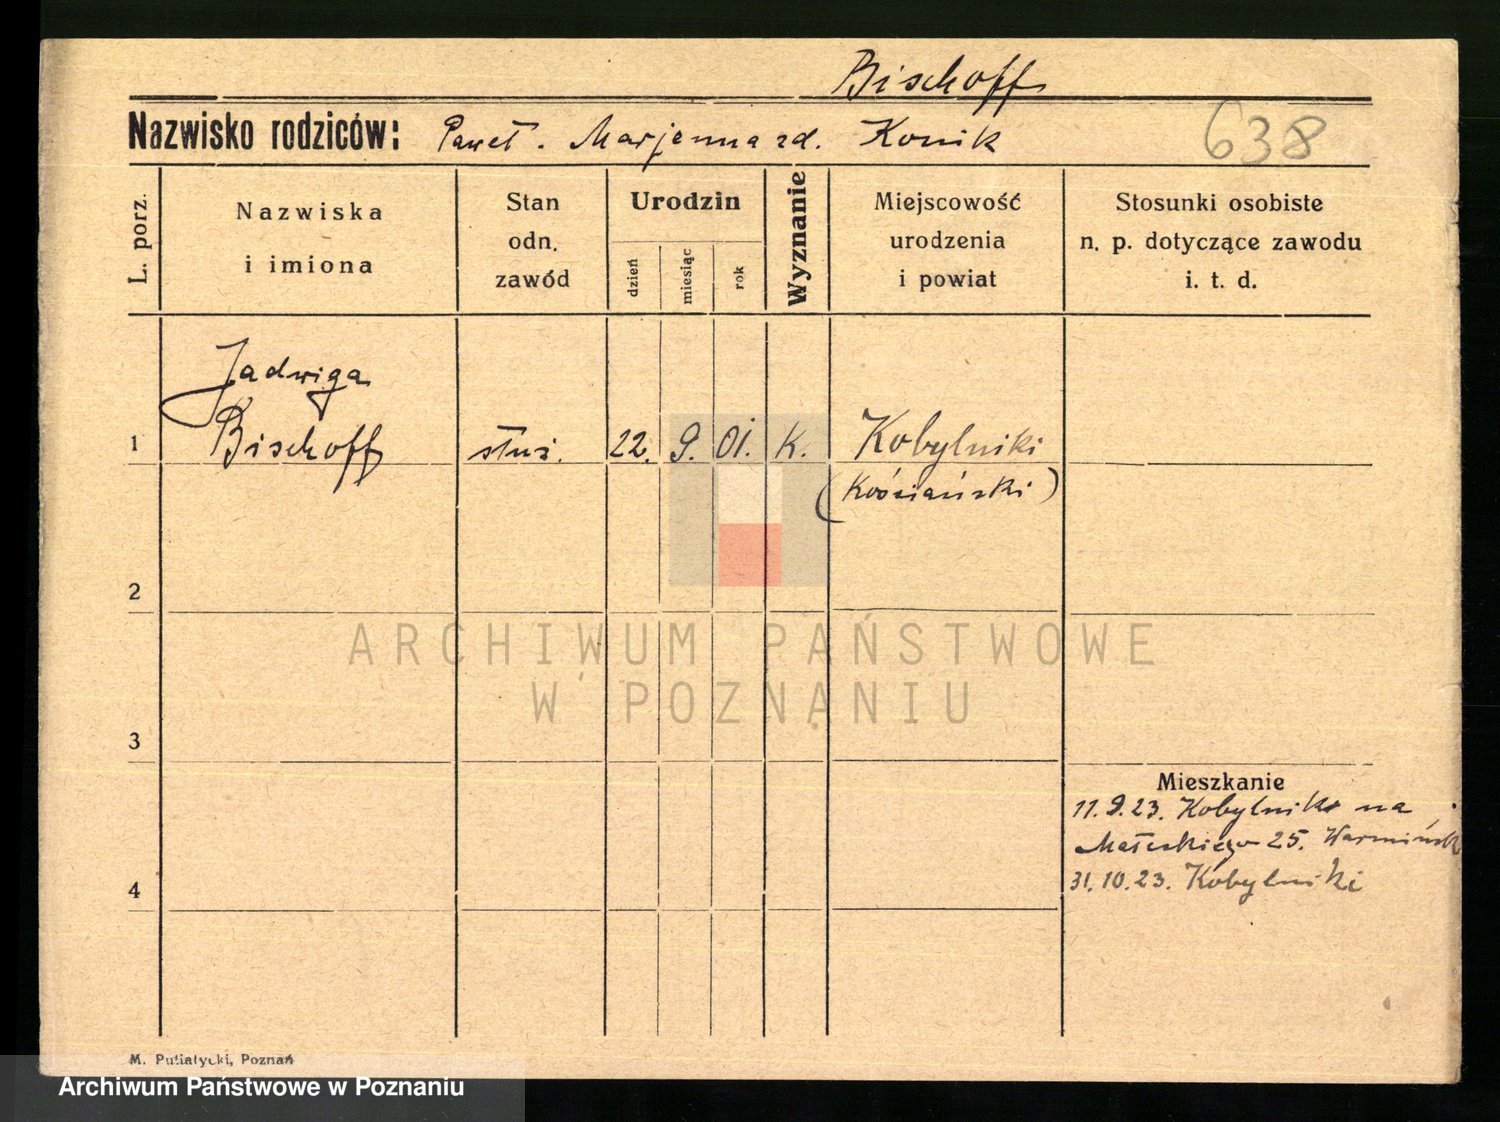 Bischoff
Nazwisko rodziców: Paweł. Marjanna zd. Konik
638
L. porz.
Nazwiska
i imiona
Stan
odn.
zawód
Urodzin
dzień
miesiąc
rok
Wyznanie
Miejscowość
urodzenia
i powiat
Stosunki osobiste
n. p. dotyczące zawodu
i. t. d.
Jadwiga
1 Bischoff służ. 22. 9. 01. K. Kobylniki
(Kościański)
2
ARCHIWUM PAŃSTWOWE
W POZNANIU
3
Mieszkanie
11.9.23. Kobylniki na
25.
31.10.23. Kobylniki
4
M. Putiatycki, Poznań
Archiwum Państwowe w Poznaniu